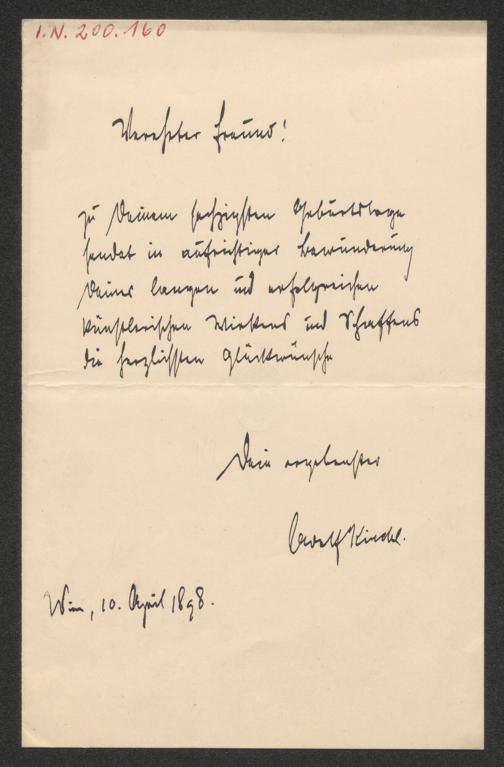 I.N. 200.160
Verehrter Freund!
Zu Deinem sechzigsten Geburtstage
sendet in aufrichtiger Bewunderung
Deines langen und erfolgreichen
künstlerischen Wirkens und Schaffens
die herzlichsten Glückwünsche
Dein ergebenster
Adolf
Wien, 10. April 1898.